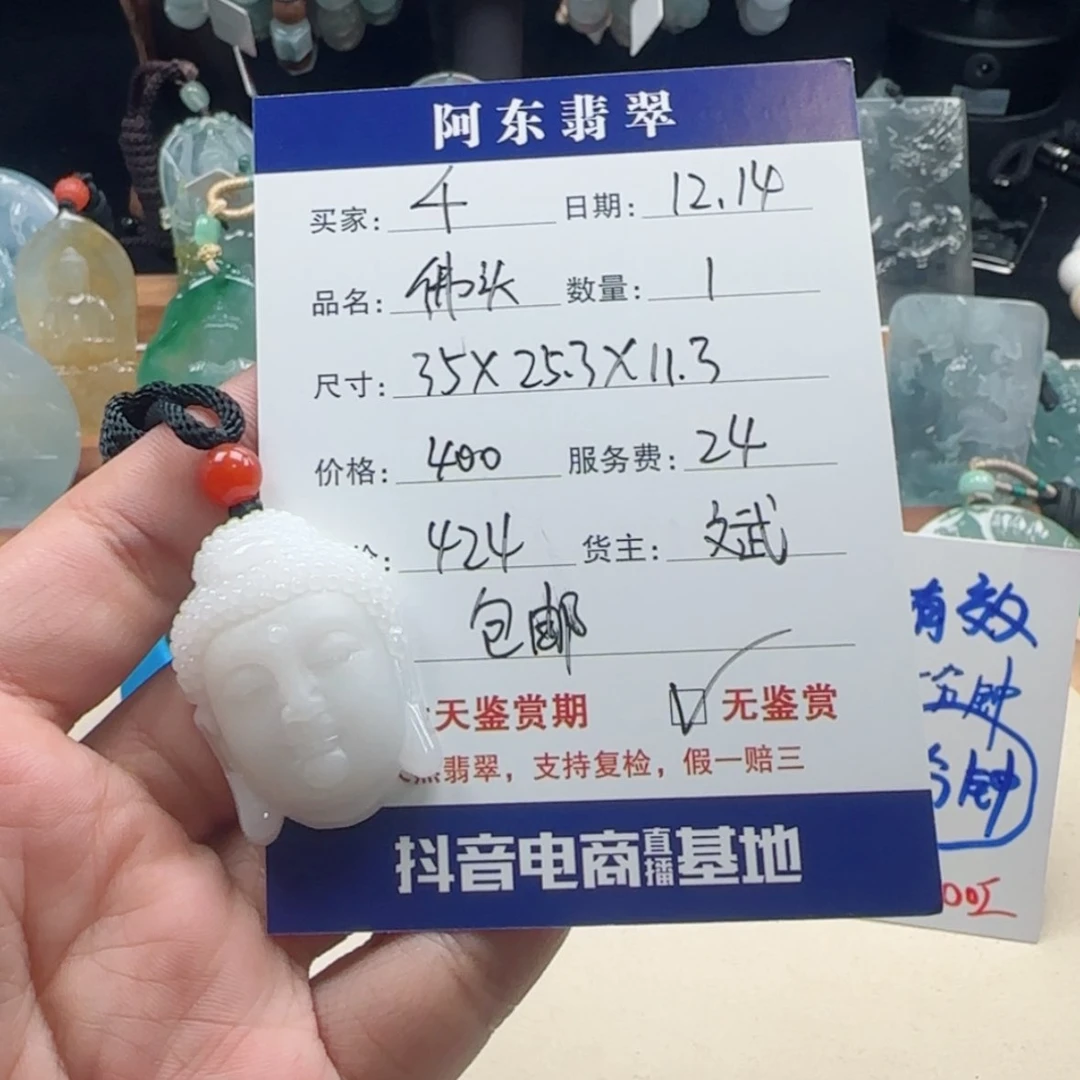 阿东翡翠
买家: 4 日期: 12.14
品名: 佛头 数量: 1
尺寸: 35X25.3X11.3
价格: 400 服务费: 24
424 货主: 文武
包邮
天鉴赏期 ☑ 无鉴赏
翡翠，支持复检，假一赔三
抖音电商直播基地
有效
钟
钟